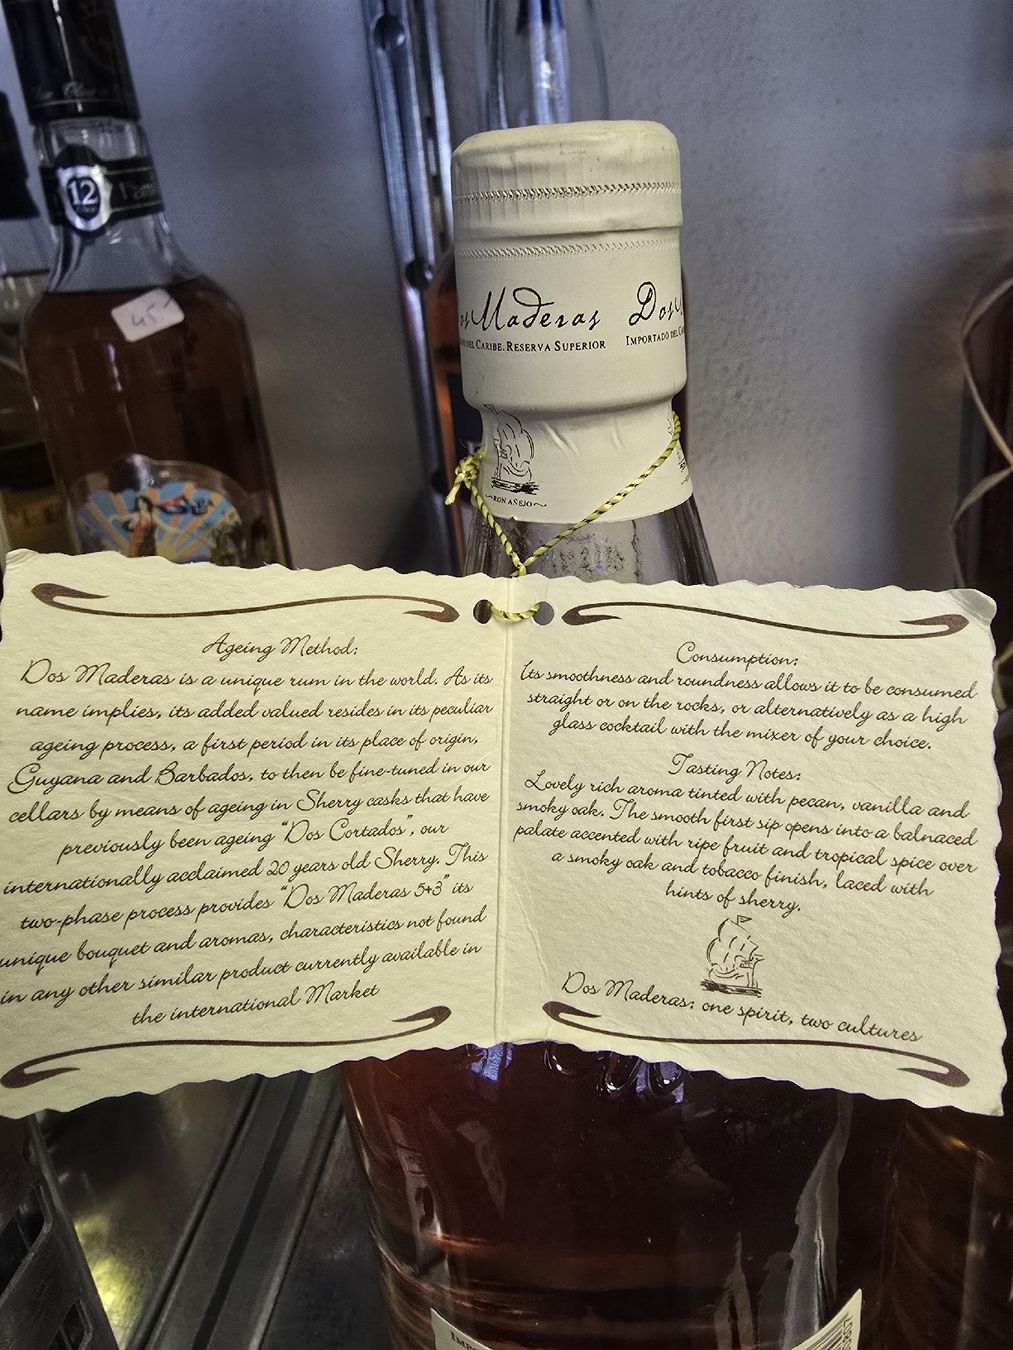 12
45.-
Maderas Dos
DEL CARIBE. RESERVA SUPERIOR IMPORTADO DEL
~RON AÑEJO~
Ageing Method:
Dos Maderas is a unique rum in the world. As its
name implies, its added valued resides in its peculiar
ageing process, a first period in its place of origin,
Guyana and Barbados, to then be fine-tuned in our
cellars by means of ageing in Sherry casks that have
previously been ageing "Dos Cortados", our
internationally acclaimed 20 years old Sherry. This
two-phase process provides "Dos Maderas 5+3" its
unique bouquet and aromas, characteristics not found
in any other similar product currently available in
the international Market
Consumption:
Its smoothness and roundness allows it to be consumed
straight or on the rocks, or alternatively as a high
glass cocktail with the mixer of your choice.
Tasting Notes:
Lovely rich aroma tinted with pecan, vanilla and
smoky oak. The smooth first sip opens into a balnaced
palate accented with ripe fruit and tropical spice over
a smoky oak and tobacco finish, laced with
hints of sherry.
Dos Maderas: one spirit, two cultures